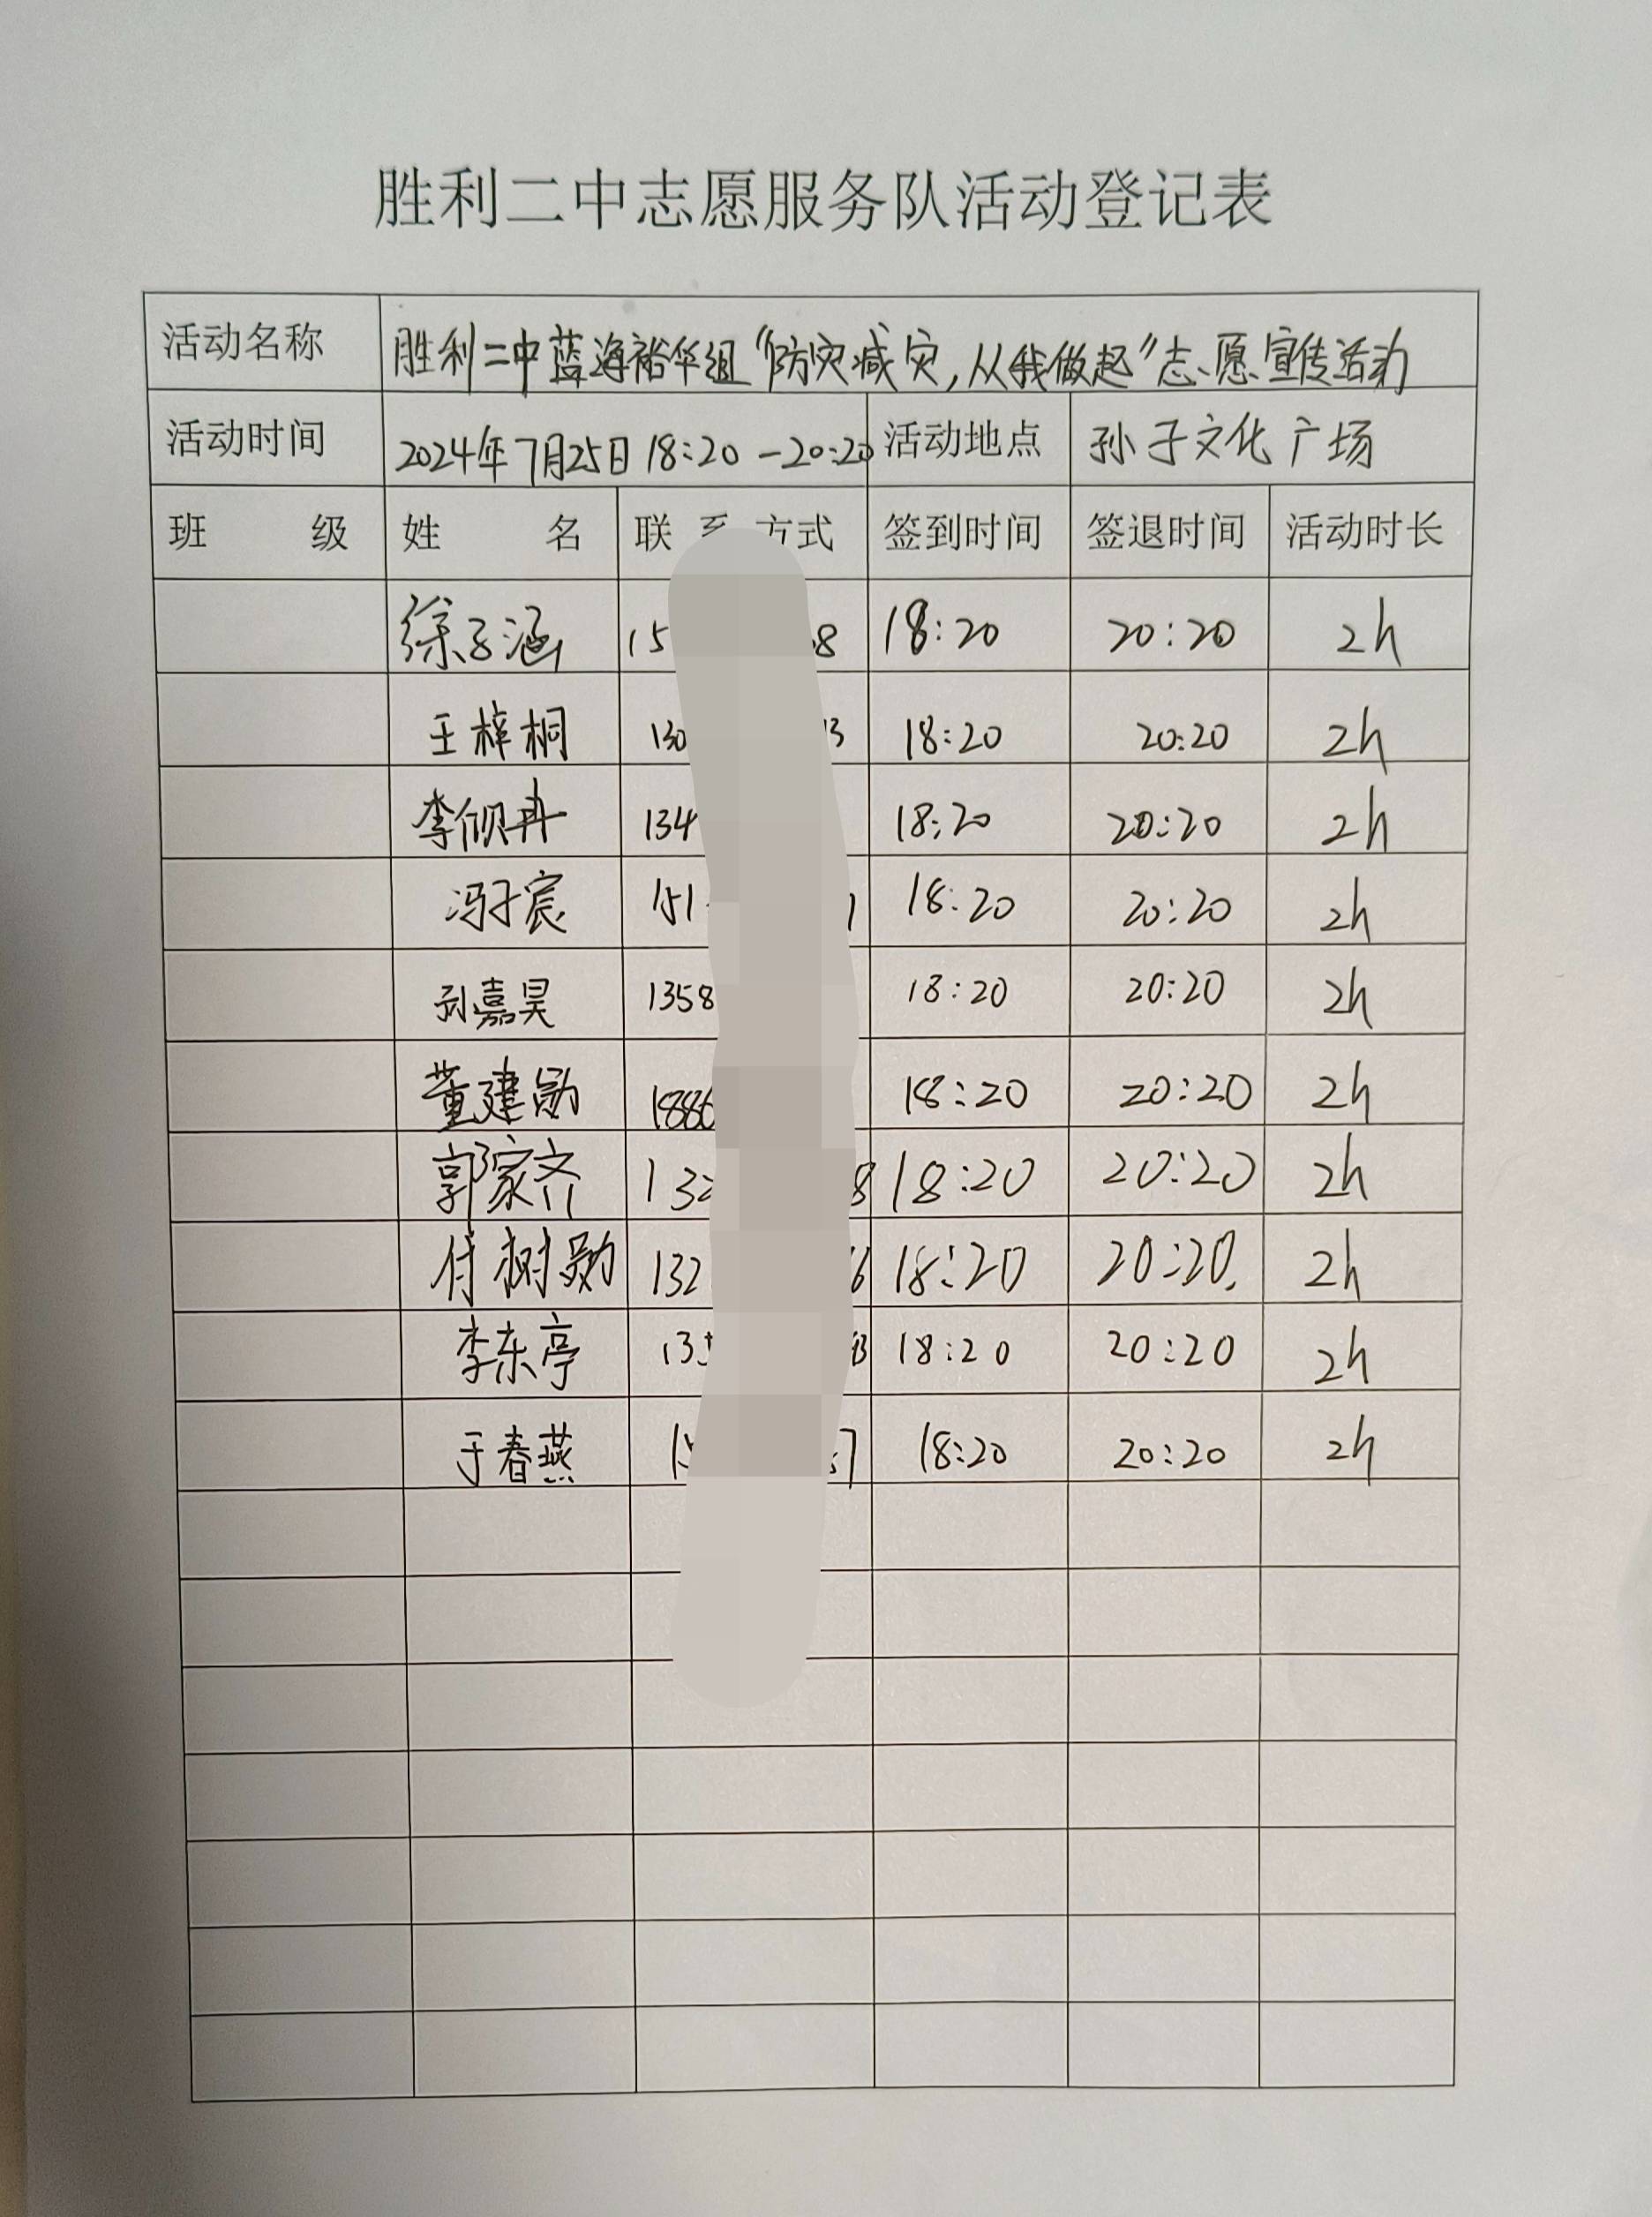 胜利二中志愿服务队活动登记表
活动名称 胜利二中蓝海裕华组“防灾减灾,从我做起”志愿宣传活动
活动时间 2024年7月25日 18:20-20:20 活动地点 孙子文化广场
班 级 姓 名 联 系 方式 签到时间 签退时间 活动时长
徐子涵 15 8 18:20 20:20 2h
王梓桐 130 13 18:20 20:20 2h
李 冉 134 18:20 20:20 2h
冯子宸 151 1 18:20 20:20 2h
孙嘉昊 1358 18:20 20:20 2h
董建勋 1886 18:20 20:20 2h
郭家齐 132 8 18:20 20:20 2h
付树勋 132 6 18:20 20:20. 2h
李东亭 135 3 18:20 20:20 2h
于春燕 15 7 18:20 20:20 2h